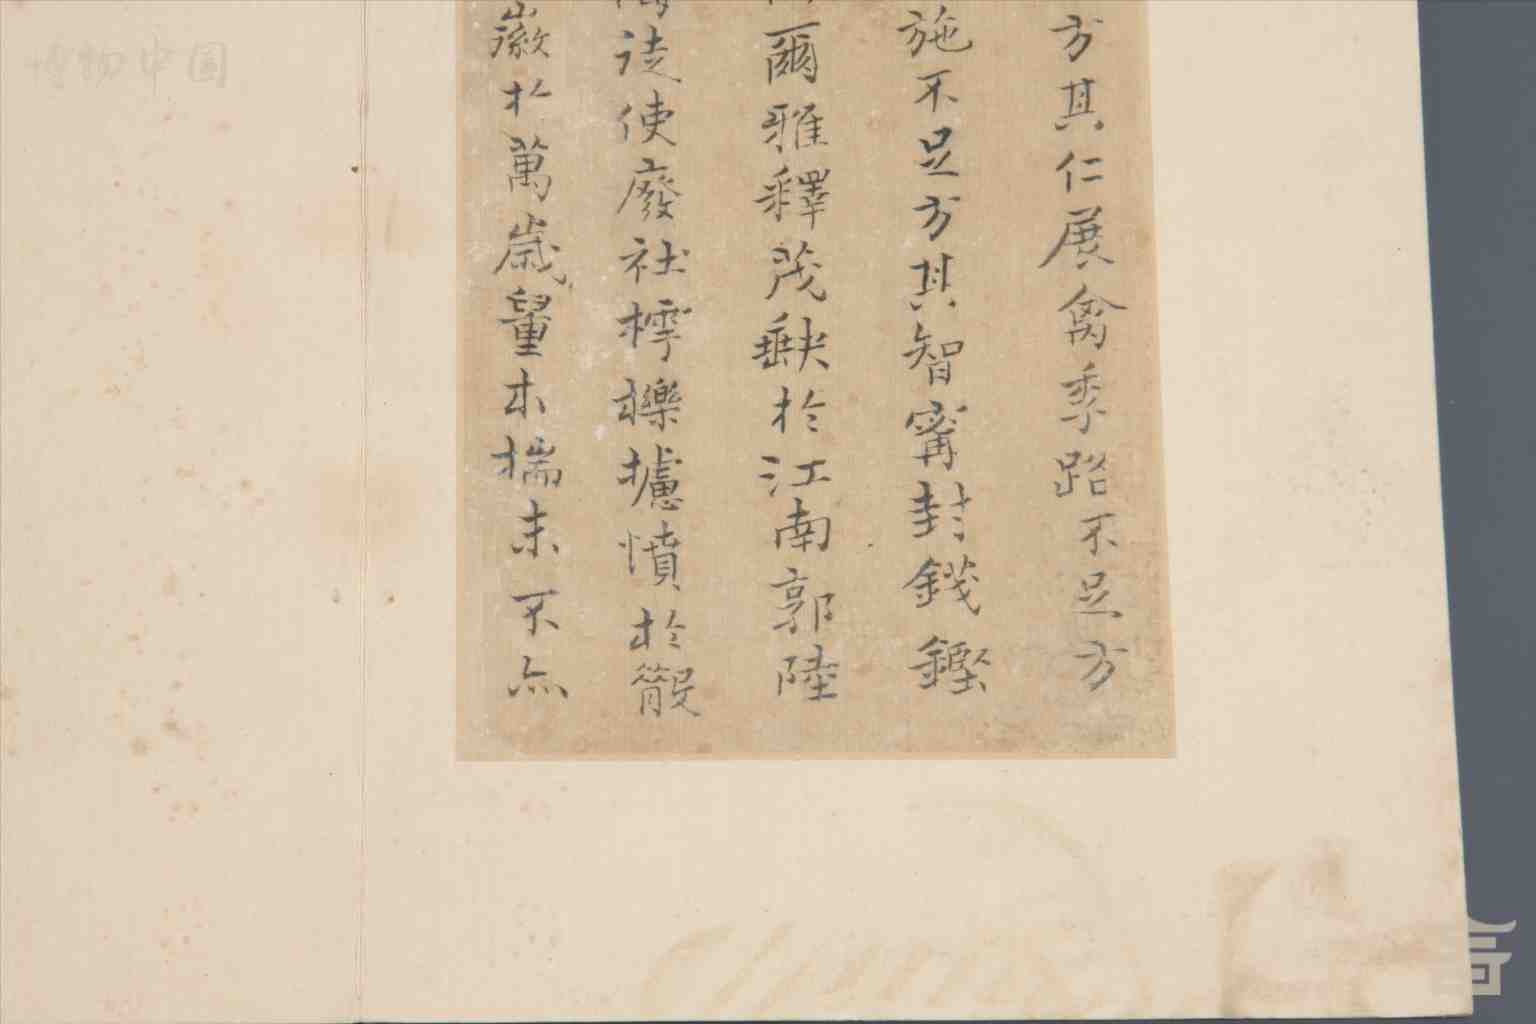 方其仁展禽季路不足方
施不足方其智甯封錢鏗
爾雅釋茂缺於江南郭陸
徒使廢社樗櫟攄憤於
徽於萬歲量本揣末不
博物中国